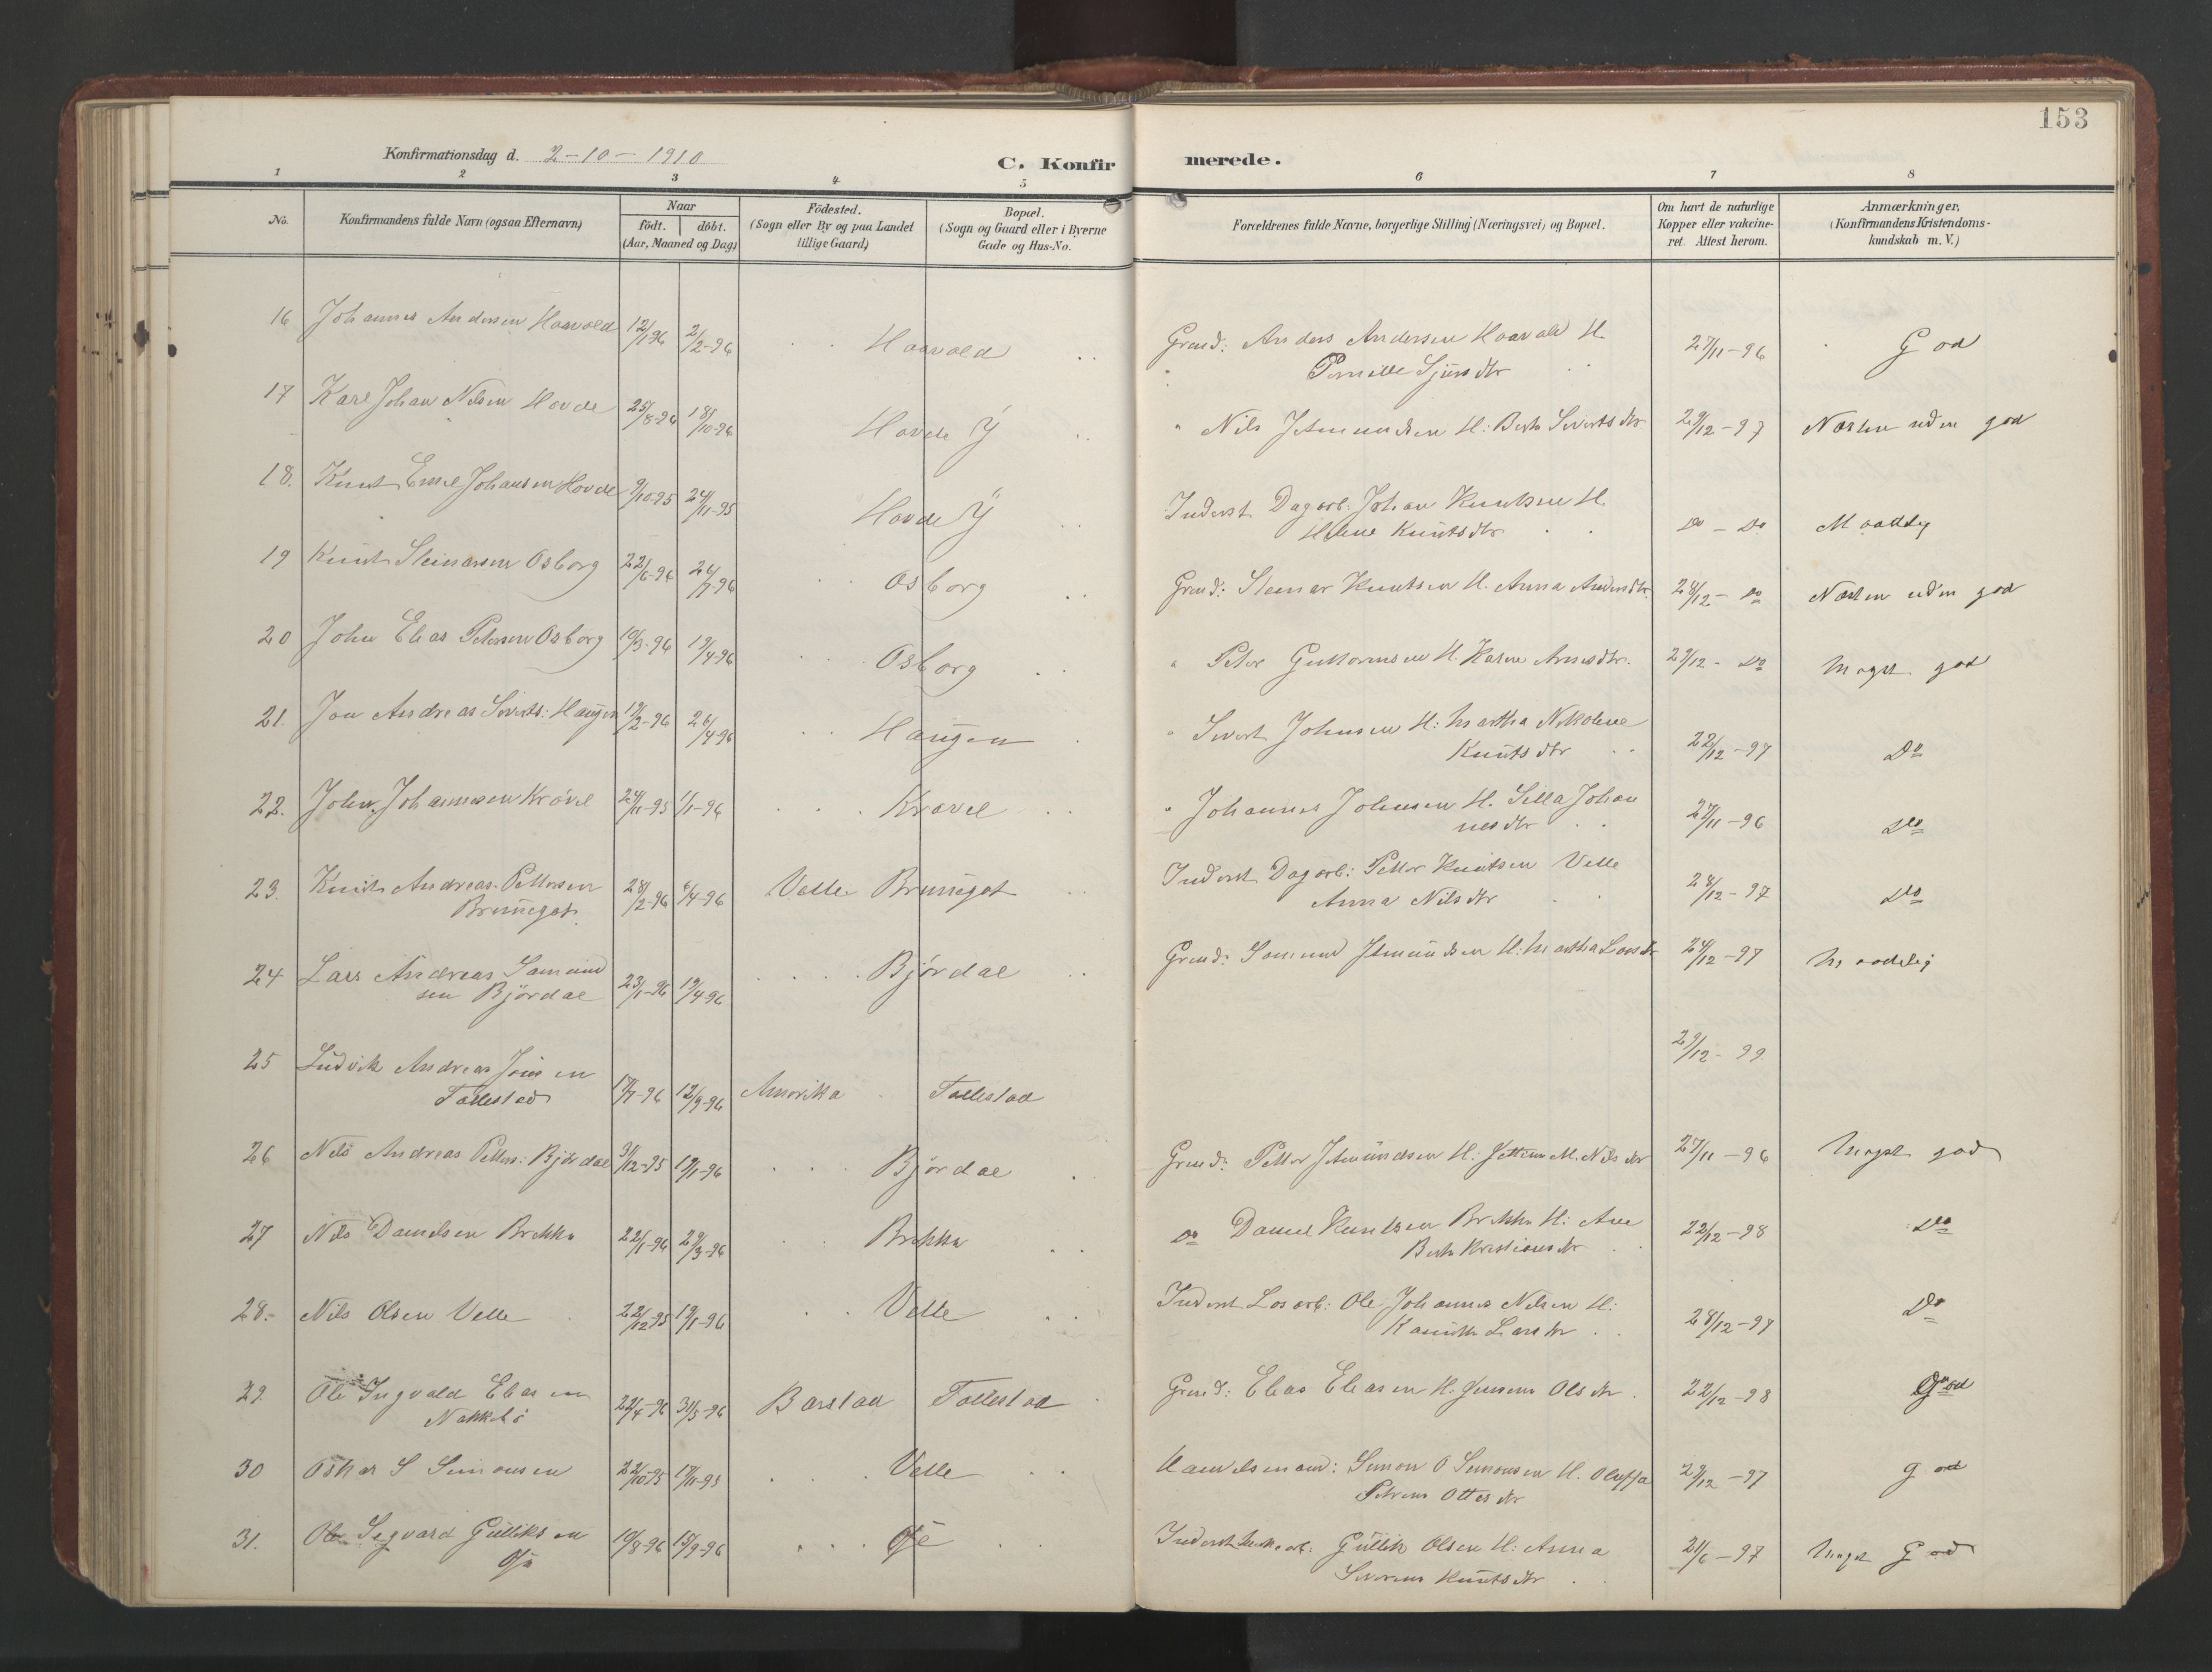 153
Konfirmationsdag d. 2-10-1910
C. Konfirmerede.
1 2 3 4 5 6 7 8
No.
Konfirmandens fulde Navn (ogsaa Efternavn)
Naar
födt. döbt.
(Aar, Maaned og Dag)
Födested.
(Sogn eller By og paa Landet
lillige Gaard)
Bopæl.
(Sogn og Gaard eller i Byerne
Gade og Hus-No.
Forældrenes fulde Navne, borgerlige Stilling (Næringsvei) og Bopæl.
Om havt de naturlige
Kopper eller vakcine-
ret. Attest herom.
Anmærkninger,
(Konfirmandens Kristendoms-
kundskab m. V.)
16 Johannes Andersen Haavold 12/1 96 2/2-96 Haavold Grmd: Anders Andersen Haavold H. 27/11-96 God
" Pernille Sjursdtr
17 Karl Johan Nilsen Hovde 25/8-96 18/10-96 Hovde Y " Nils Jetmundsen H: Berte Sivertsdtr 29/12-97 Næsten uden god
18. Knut Emil Johansen Hovde 9/10-95 24/11-95 Hovde Y Inderst Dagarb: Johan Knutsen H. Do - Do Maadelig
Helene Knutsdtr
19 Knut Steinarsen Osborg 22/6-96 26/7-96 Osborg Grmd: Steinar Knutsen H. Anna Andersdtr. 28/12- Do Næsten uden god
20 John Elias Petersen Osborg 10/3-96 19/4-96 Osborg " Peter Guttormsen H. Karen Arnesdtr. 29/12- Do Meget god
21. Jon Andreas Siverts: Haugen 19/2-96 26/4-96 Haugen " Sivert Johnsen H: Martha Nikoline 22/12-97 Do
Knuts dtr
22. John Johannesen Krøvel 24/11-95 1/1-96 Krøvel " Johannes Johnsen H. Silla Johan 27/11-96 Do
nesdtr
23. Knut Andreas Pettersen 28/2-96 6/4-96 Velle Brunegot Inderst Dagarb: Petter Knutsen Velle 28/12-97 Do
Brunegot Anna Nilsdtr
24 Lars Andreas Samund 23/1-96 19/4-96 Bjørdal Grmd: Samund Jetmundsen H: Martha Larsdtr 24/12-97 Maadelig
sen Bjørdal
25 Ludvik Andreas Jonsen 29/12-99.
Tollestad 17/7-96 12/9-96 Amerika Tollestad
26 Nils Andreas Petters: Bjørdal 31/12-95 19/1-96 Bjørdal Grmd: Petter Jetmundsen H: Jettine M. Nilsdtr 27/11-96 Meget god
27 Nils Danielsen Brekke 22/1-96 29/3-96 Brekke Do Daniel Knutsen Brekke H: Ane 22/12-98 Do
Berte Kristiansdtr
28.- Nils Olsen Velle 22/12-95 19/1-96 Velle Inderst Løsarb: Ole Johannes Nilsen H: 28/12-97 Do
Larsdtr
29. Ole Ingvald Eliasen 22/4-96 31/5-96 Barstad Tollestad Grmd: Elias Eliasen H. Jensine Olsdtr. 22/12-98 God
Nakkebø
30 Oskar S Simonsen 22/10-95 17/11-95 Velle Handelsmand: Simon O Simonsen H. Oluffa 29/12-97 god
Petrine Ottesdtr
31. Ole Sigvard Gulliksen 10/8-96 15/9-96 Øie Inderst Gullik Olsen H: Anna 21/6-97 Meget God
Øie Severine Knutsdtr